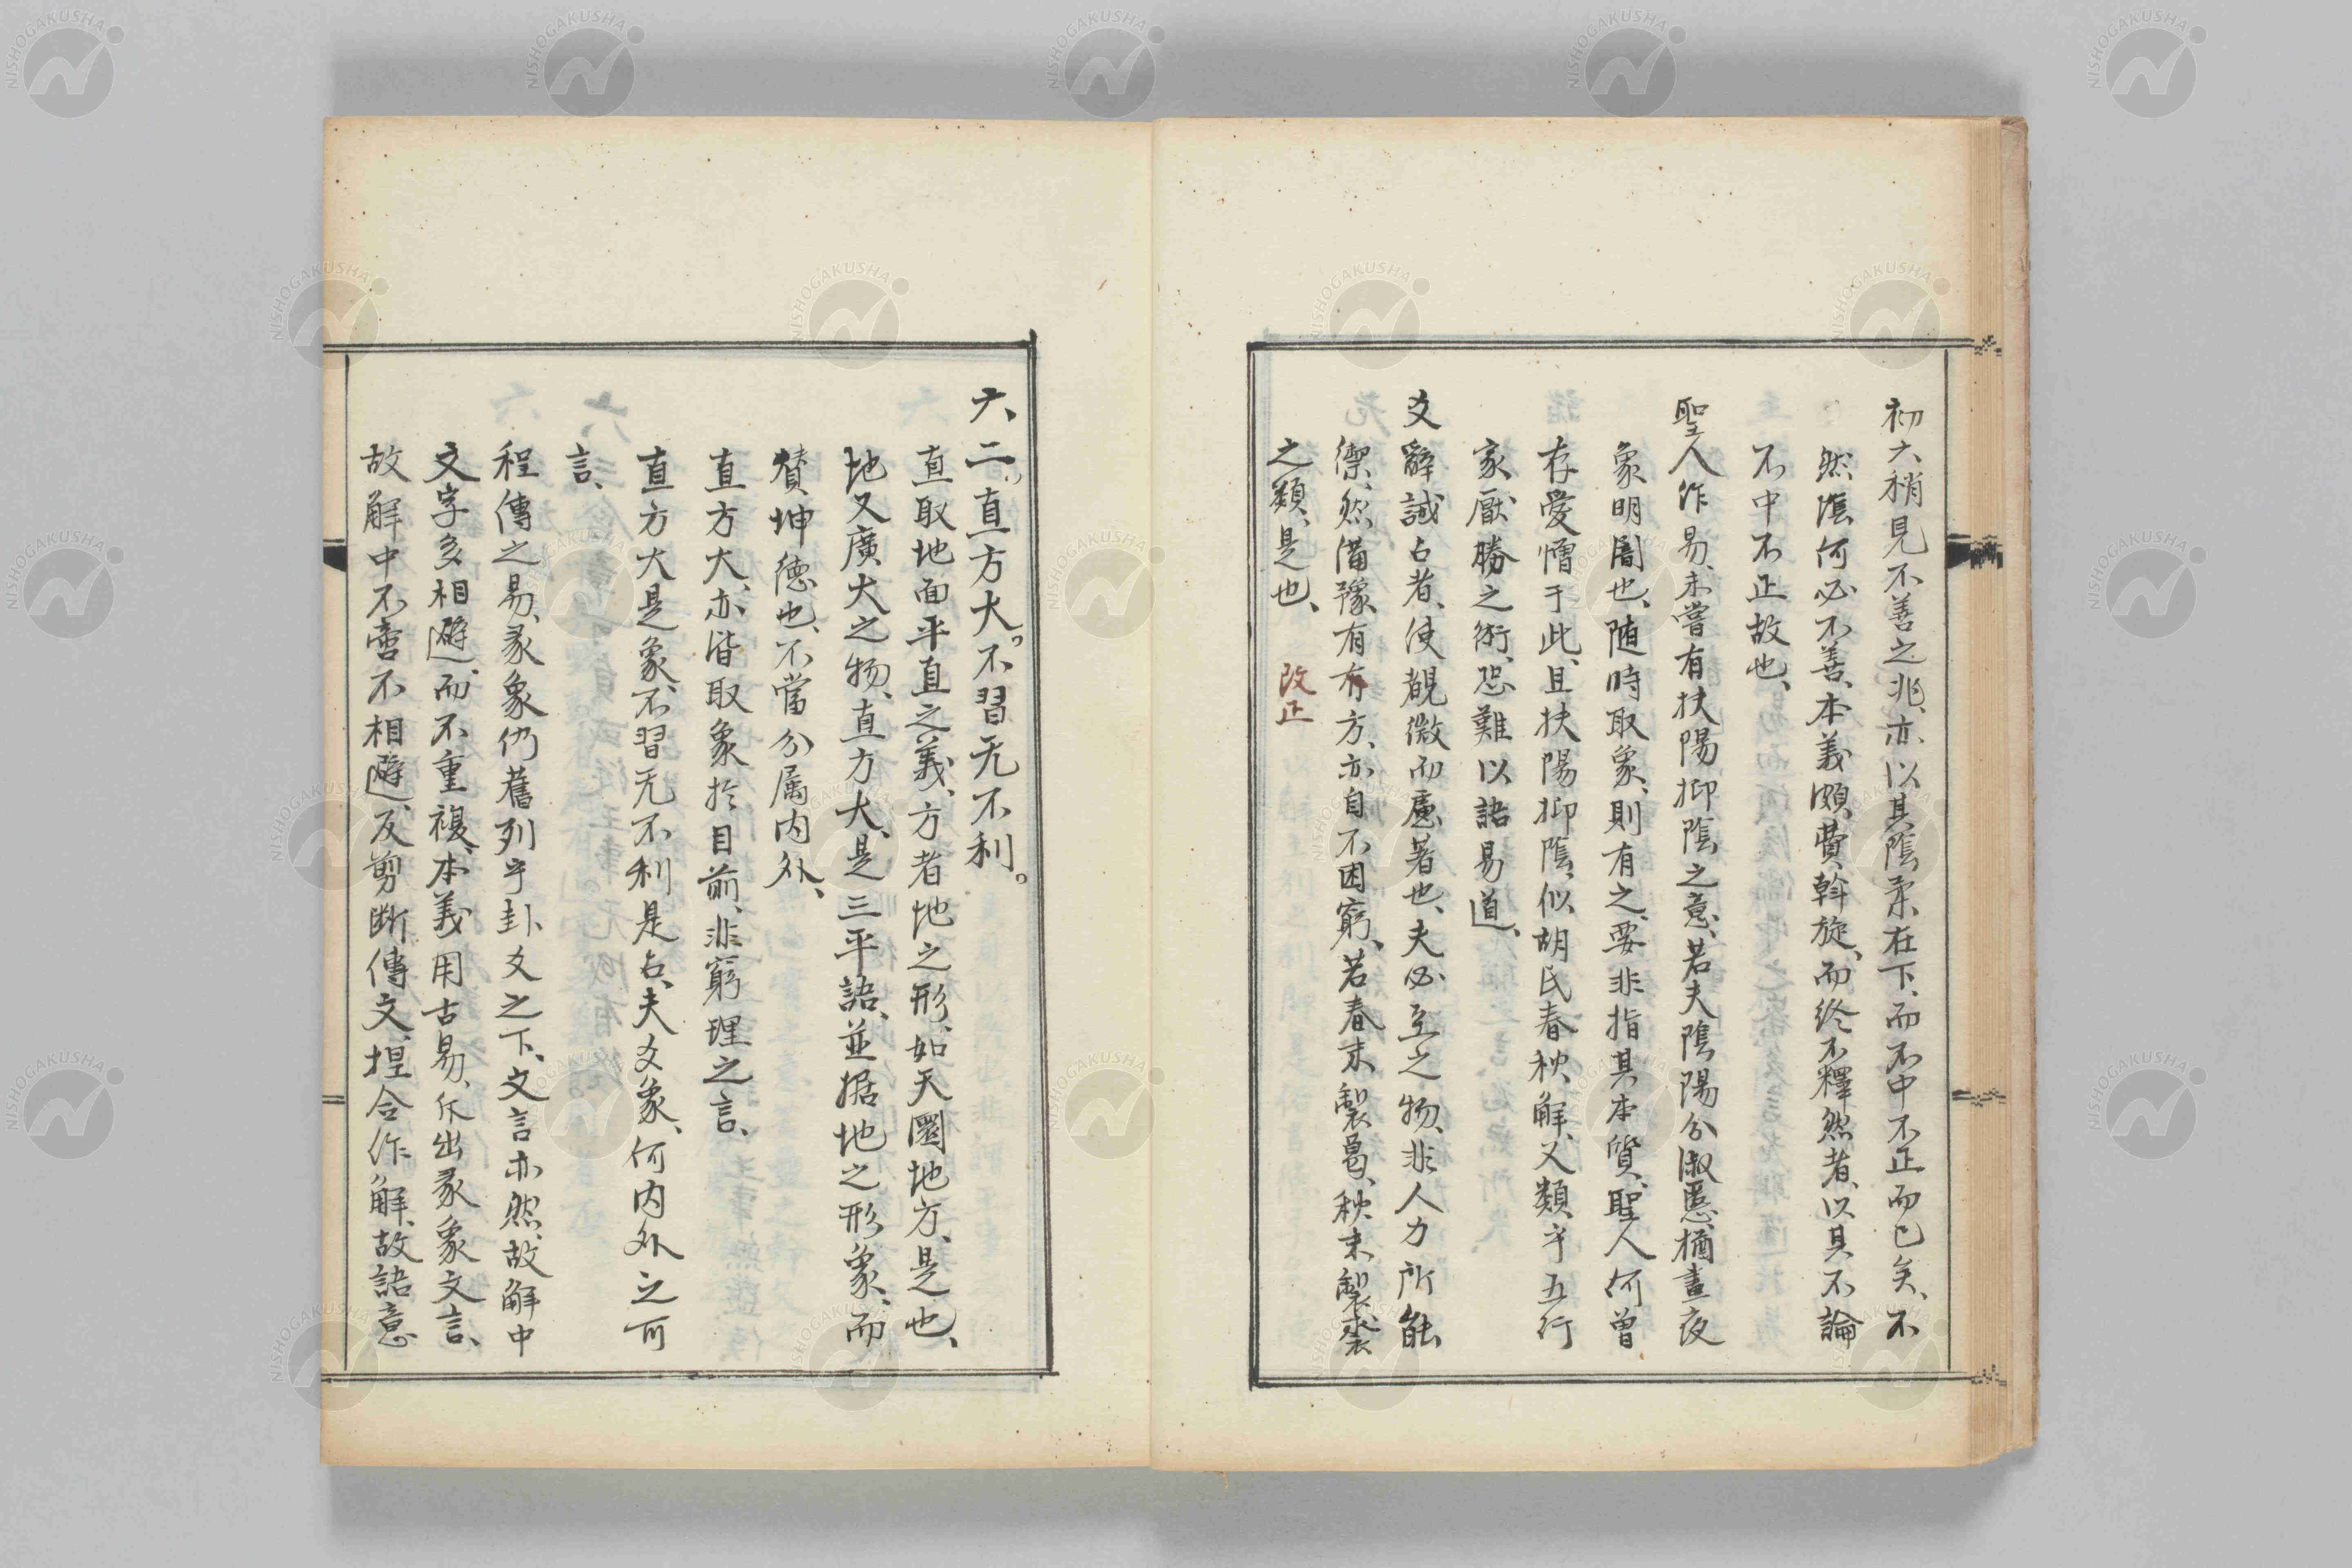 初六稍見不善之兆、亦以其陰柔在下、而不中不正而已矣、不
然陰何必不善、本義頗費斡旋、而終不釋然者、以其不論
不中不正故也、
聖人作易、未嘗有扶陽抑陰之意、若夫陰陽分淑慝、猶晝夜
象明闇也、随時取象、則有之、要非指其本質、聖人何曽
存愛憎于此、且扶陽抑陰、似胡氏春秋解、又類乎五行
家厭勝之術、恐難以語易道、
爻辭誡占者、使覩微而慮著也、夫必至之物、非人力所能
禦、然備豫有有方、亦自不困窮、若春末製葛、秋末製裘
之類、是也、 改正
六二、直方大。不習无不利。
直取地面平直之義、方者地之形、如天圜地方、是也、
地又廣大之物、直方大、是三平語、並据地之形象、而
賛坤德也、不當分属内外、
直方大、亦皆取象於目前、非窮理之言、
直方大是象、不習无不利是占、夫爻象、何内外之可
言、
程傳之易、彖象仍舊列乎卦爻之下、文言亦然、故解中
文字多相避、而不重複、本義用古易、斥出彖象文言、
故解中不啻不相避、反剪断傳文、捏合作解、故語意
NISHOGAKUSHA